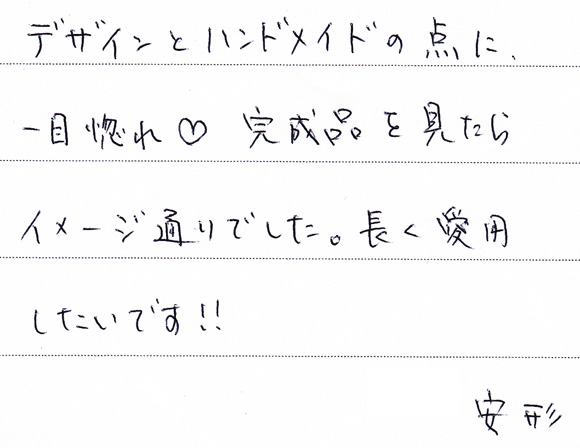 デザインとハンドメイドの点に、
一目惚れ♡ 完成品を見たら
イメージ通りでした。長く愛用
したいです!!
安形